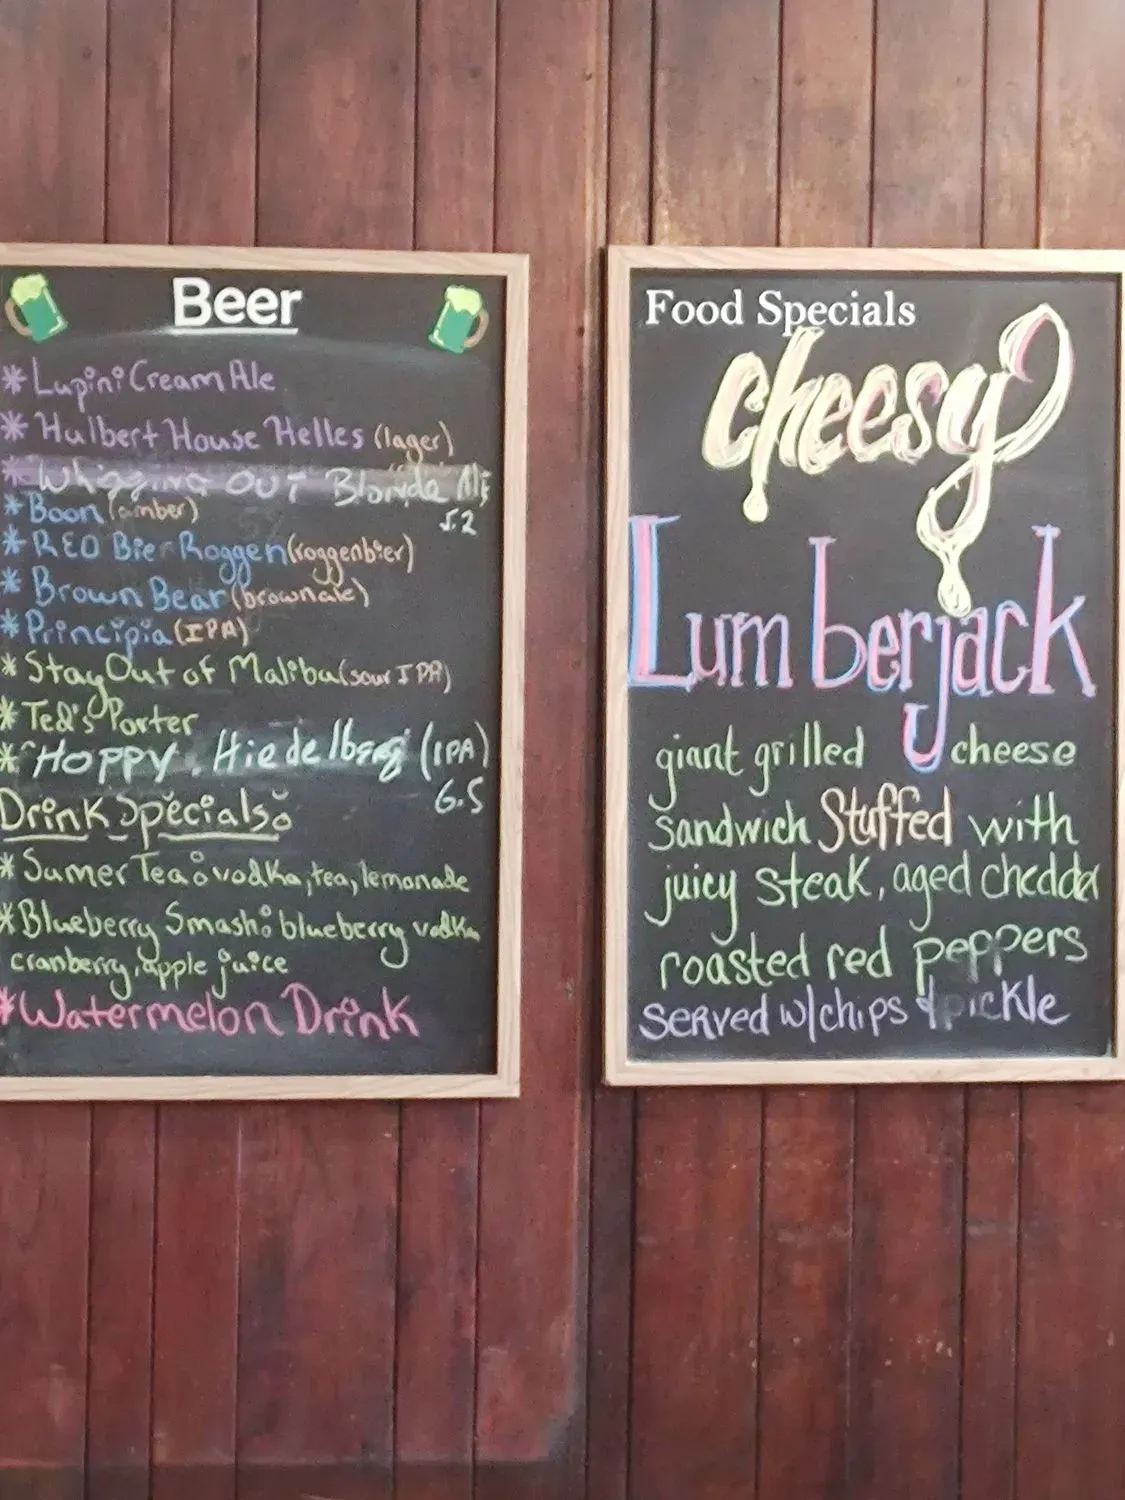 Beer
* Lupini Cream Ale
* Hulbert House Helles (lager)
* Whigging OUT Blonde Ale
5.2
* Boon (amber)
* RED Bier Roggen (roggenbier)
* Brown Bear (brown ale)
* Principia (IPA)
* Stay Out of Malibu (sour IPA)
* Ted's Porter
* "HOPPY. Hiedelberg (IPA)
6.5
Drink Specials:
* Sumer Tea: vodka, tea, lemonade
* Blueberry Smash: blueberry vodka,
cranberry, apple juice
* Watermelon Drink
Food Specials
cheesy
Lumberjack
giant grilled cheese
sandwich Stuffed with
juicy steak, aged cheddar
roasted red peppers
served w/chips & pickle